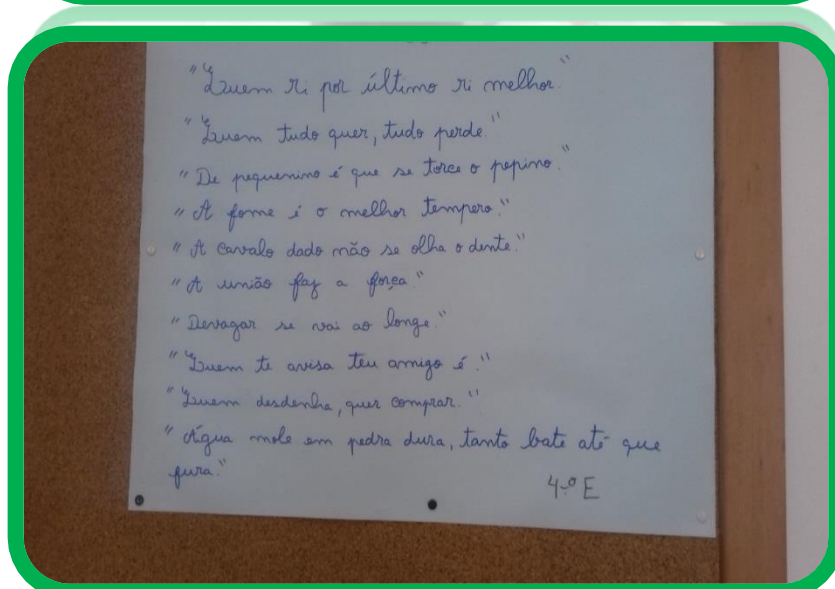 "Quem ri por último ri melhor."
"Quem tudo quer, tudo perde."
"De pequenino é que se torce o pepino."
"A fome é o melhor tempero."
"A cavalo dado não se olha o dente."
"A união faz a força."
"Devagar se vai ao longe."
"Quem te avisa teu amigo é."
"Quem desdenha, quer comprar."
"Água mole em pedra dura, tanto bate até que
fura."
4.º E